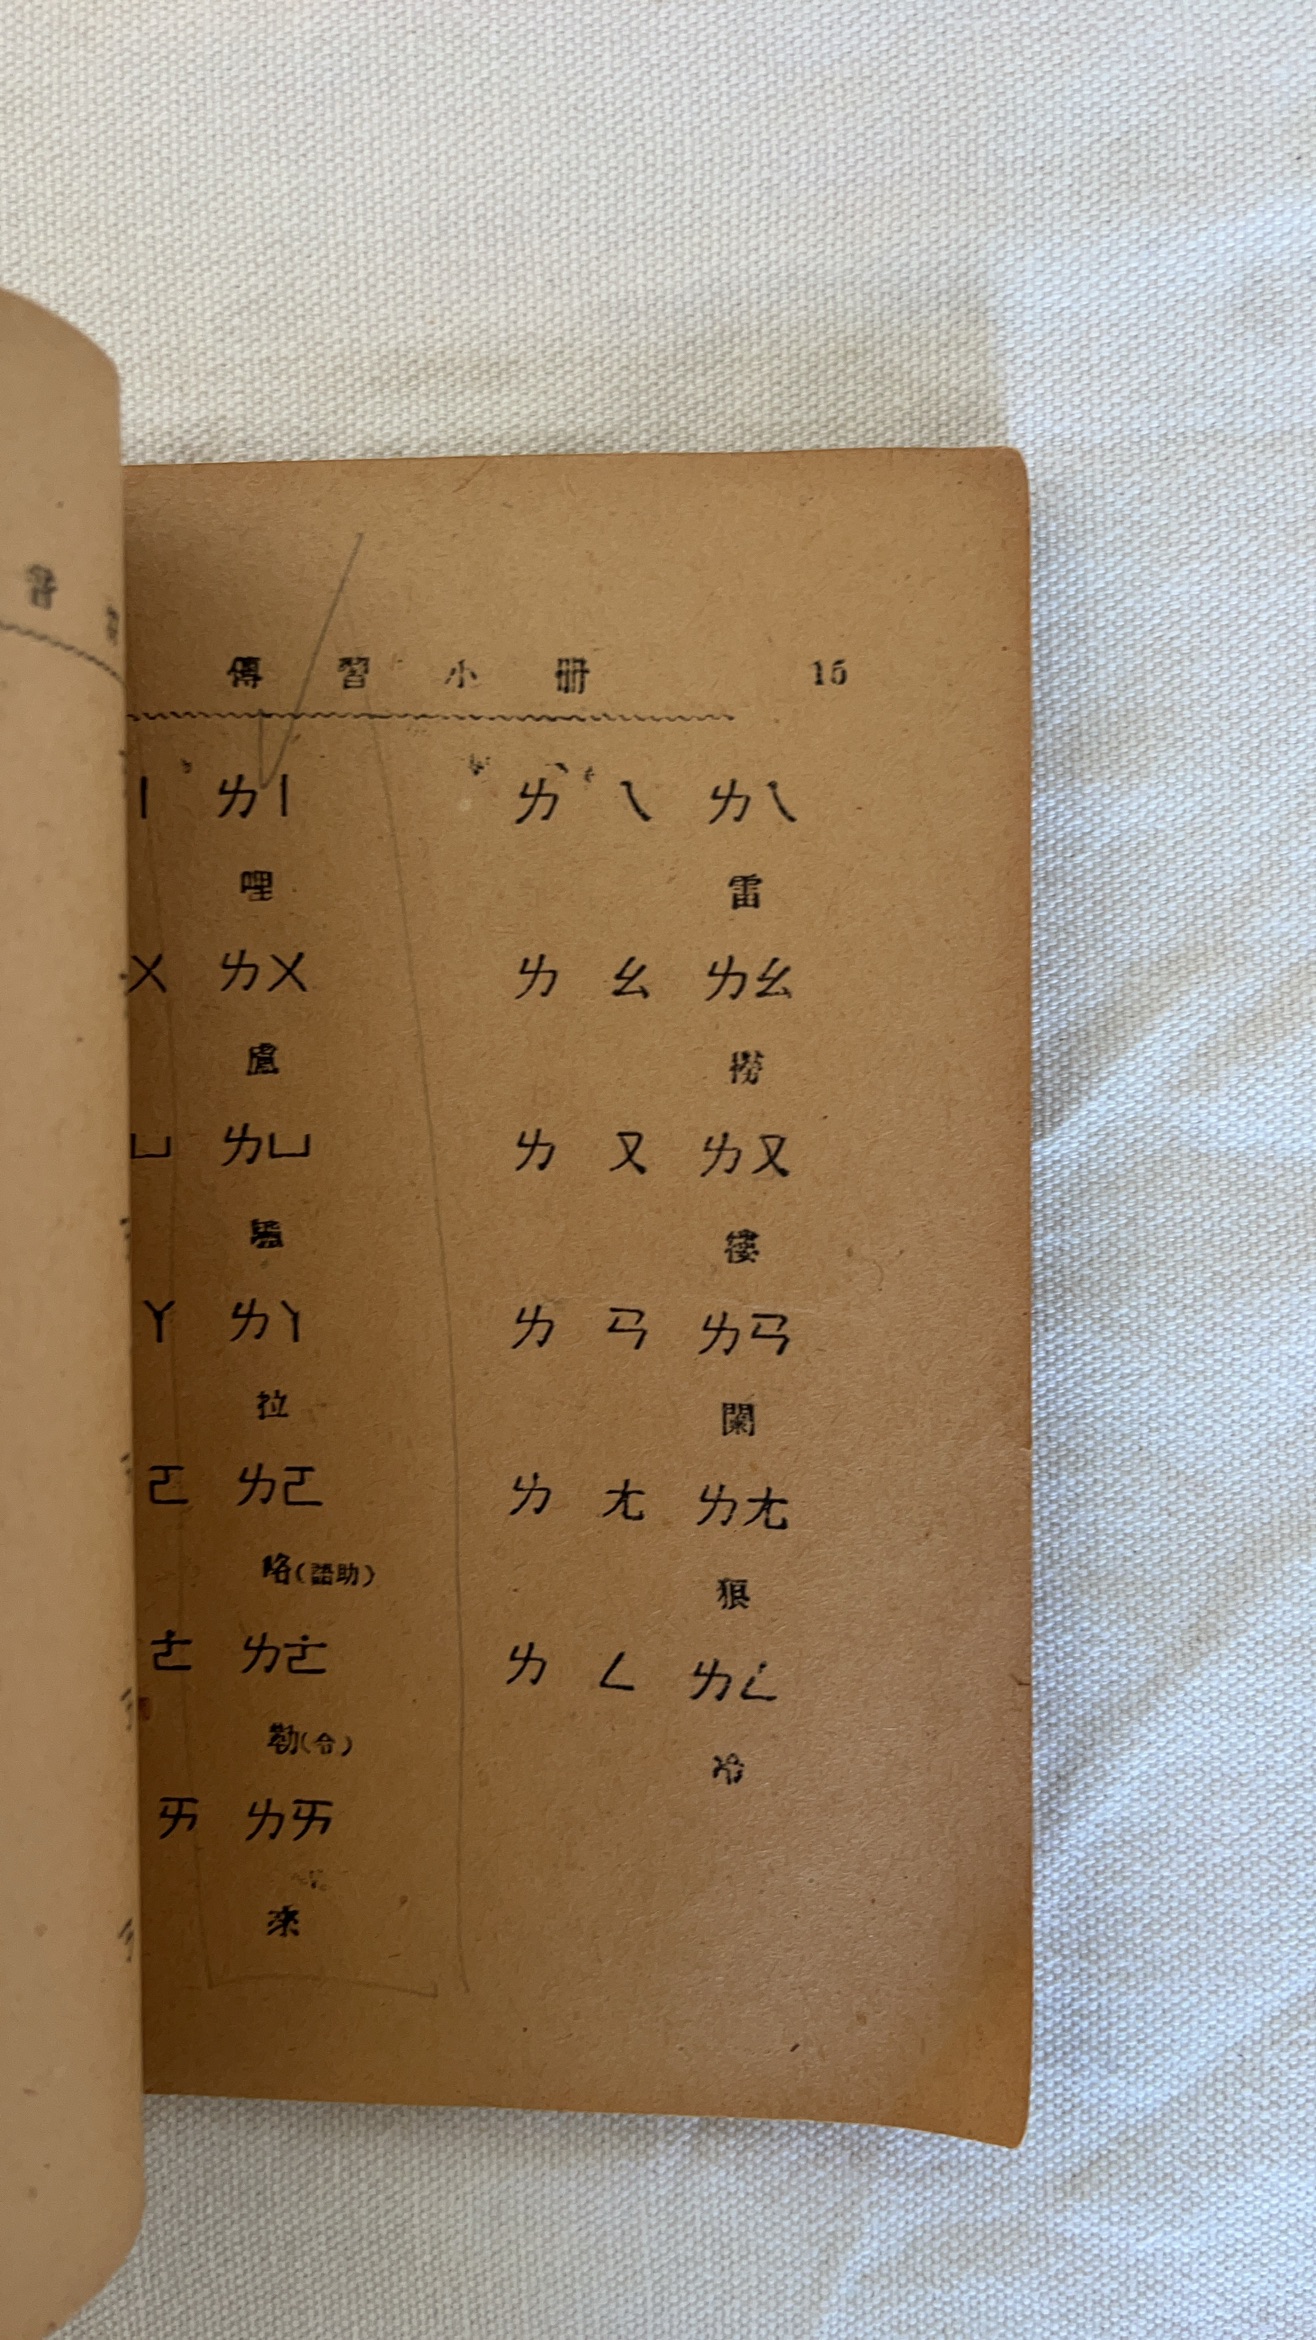 傳習小册 15
丨 ㄌ丨 ㄌ ㄟ ㄌㄟ
哩 雷
ㄨ ㄌㄨ ㄌ ㄠ ㄌㄠ
盧 撈
ㄩ ㄌㄩ ㄌ ㄡ ㄌㄡ
驢
ㄚ ㄌㄚ ㄌ ㄢ ㄌㄢ
拉 闌
ㄛ ㄌㄛ ㄌ ㄤ ㄌㄤ
咯(語助) 狼
ㄜ ㄌㄜ ㄌ ㄥ ㄌㄥ
勒(令) 冷
ㄞ ㄌㄞ
來